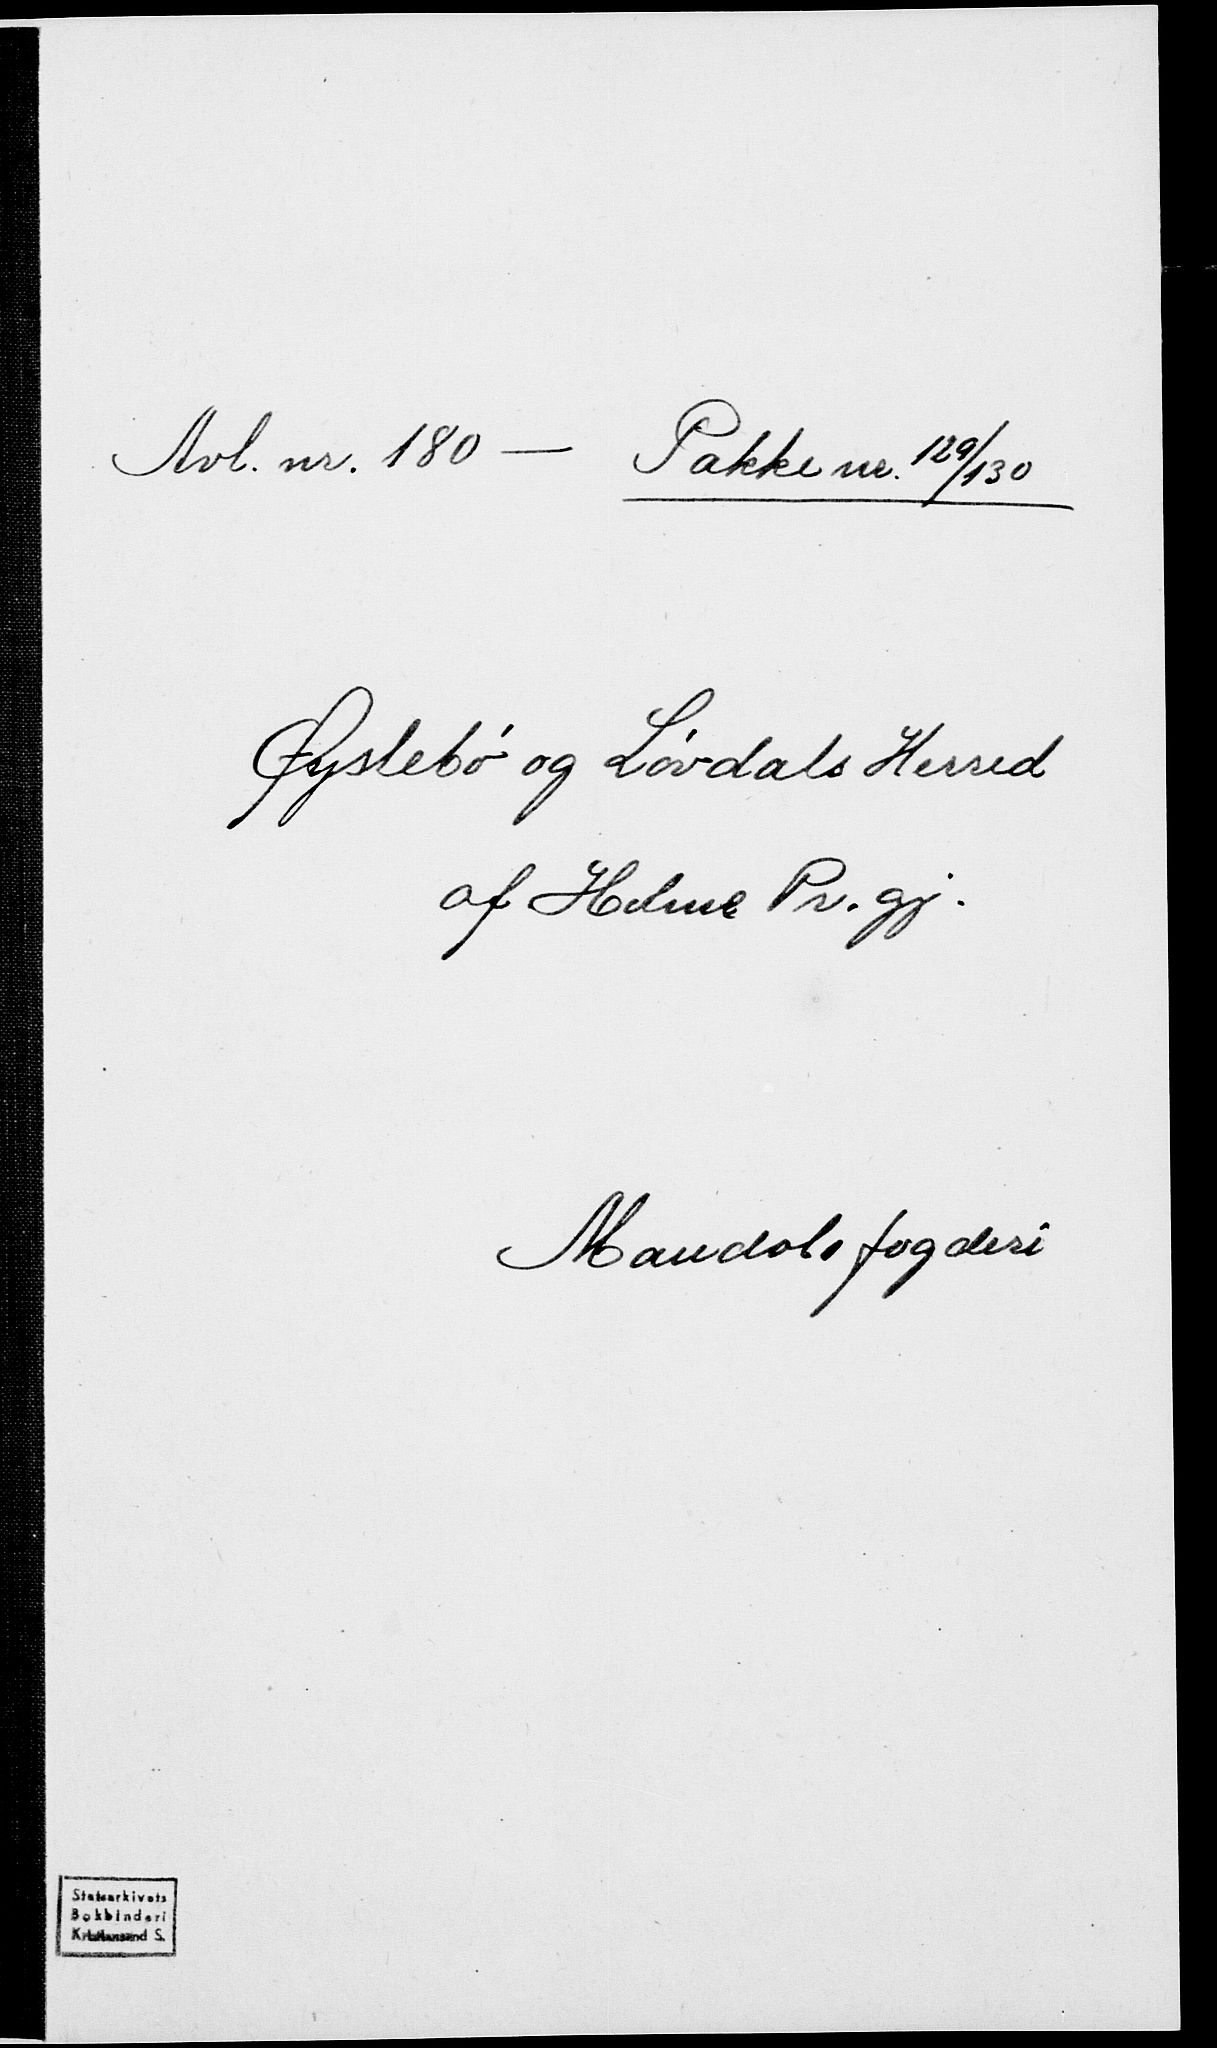 Avl. nr. 180 — Pakke nr. 129/130
Øyslebó og Lóvdals Herred
af Holme Pr. gj.
Mandals fogderi
Statsarkivets
Bokbinderi
Kristiansand S.